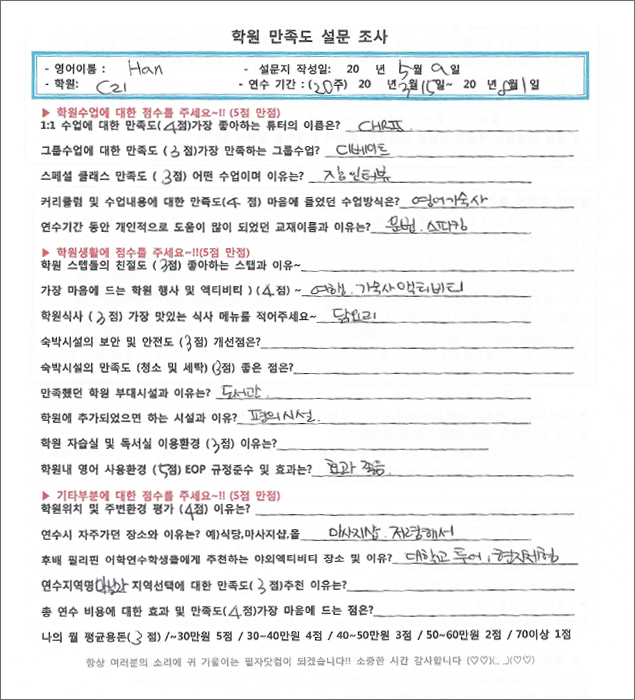 학원 만족도 설문 조사
- 영어이름 : Han - 설문지 작성일: 20 년 5월 9일
- 학원: C21 - 연수 기간 : (20주) 20 년 3월 15일~ 20 년 8월 1일
▶ 학원수업에 대한 점수를 주세요~!! (5점 만점)
1:1 수업에 대한 만족도(4점)가장 좋아하는 튜터의 이름은? CHRIS
그룹수업에 대한 만족도 (3점)가장 만족하는 그룹수업? 디베이트
스페셜 클래스 만족도 (3점) 어떤 수업이며 이유는? 잡인터뷰
커리큘럼 및 수업내용에 대한 만족도(4 점) 마음에 들었던 수업방식은? 영어기숙사
연수기간 동안 개인적으로 도움이 많이 되었던 교재이름과 이유는? 문법. 스피킹
▶ 학원생활에 점수를 주세요~!!(5점 만점)
학원 스텝들의 친절도 (3점) 좋아하는 스텝과 이유~
가장 마음에 드는 학원 행사 및 액티비티 ) (4점) ~ 여행. 기숙사액티비티
학원식사 (3점) 가장 맛있는 식사 메뉴를 적어주세요~ 닭요리
숙박시설의 보안 및 안전도 (3점) 개선점은?
숙박시설의 만족도 (청소 및 세탁) (3점) 좋은 점은?
만족했던 학원 부대시설과 이유는? 도서관.
학원에 추가되었으면 하는 시설과 이유? 편의시설.
학원 자습실 및 독서실 이용환경 (3점) 이유는?
학원내 영어 사용환경 (5점) EOP 규정준수 및 효과는? 효과 좋음.
▶ 기타부분에 대한 점수를 주세요~!! (5점 만점)
학원위치 및 주변환경 평가 (4점) 이유는?
연수시 자주가던 장소와 이유는? 예)식당,마사지샵,몰 마사지샵. 저렴해서
후배 필리핀 어학연수학생들에게 추천하는 야외액티비티 장소 및 이유? 대학교 투어, 현지체험
연수지역명 지역선택에 대한 만족도( 3점)추천 이유는?
총 연수 비용에 대한 효과 및 만족도(4점)가장 마음에 드는 점은?
나의 월 평균용돈(3점) /~30만원 5점 / 30~40만원 4점 / 40~50만원 3점 / 50~60만원 2점 / 70이상 1점
항상 여러분의 소리에 귀 기울이는 필자닷컴이 되겠습니다!! 소중한 시간 감사합니다 (♡♡)(_ _)(♡♡)